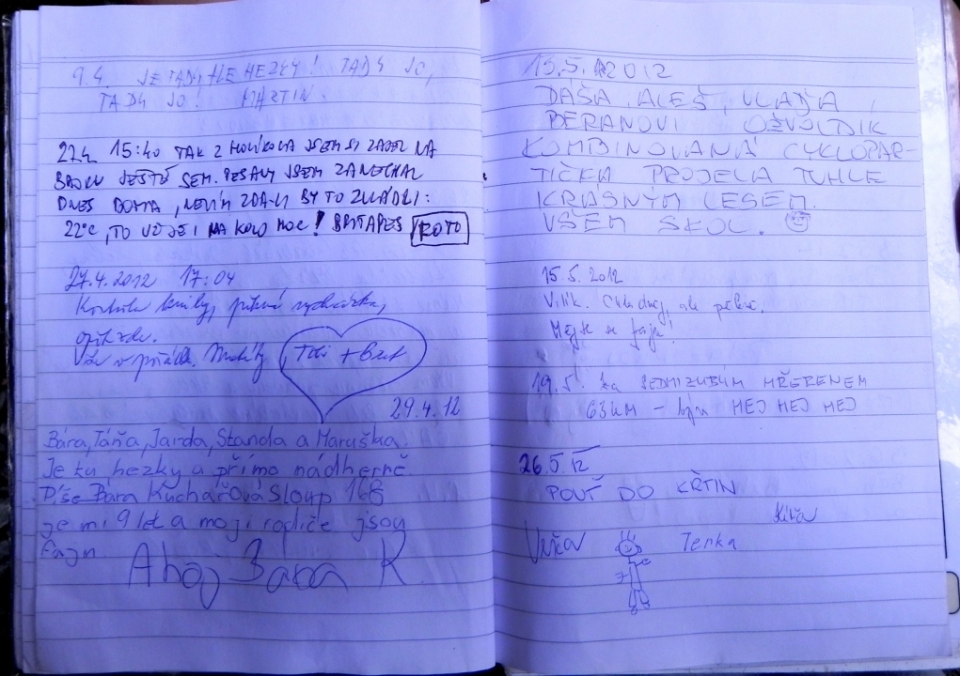 9.4. JE TADYHLE HEZKY! TADY JO,
TADY JO! MARTIN.
22.4. 15:40 TAK Z JSEM SI ZAJEL NA
JEŠTĚ SEM. JSEM ZANECHAL
DNES DOMA, NEVÍM ZDALI BY TO ZVLÁDLI:
22°C, TO UŽ JE I NA KOLO MOC! ROTO
27.4.2012 17:04
opět zde.
Vše v pořádku. + 
29.4.12
Bára, Táňa, Jarda, Standa a Maruška.
Je tu hezky a přímo nádherně
Píše Bára Kuchařová Sloup 168
je mi 9 let a moji rodiče jsou
fajn Ahoj Bára K.
13.5.2012
DAŠA, ALEŠ, VLAĎA
BERANOVI OŽVOLDIK
KOMBINOVANÁ CYKLOPAR-
TIČKA PROJELA TUHLE
KRÁSNÝM LESEM.
VŠEM SKOL.
15.5.2012
Vilík. Chladněj, ale pěkně.
Mějte se fajn!
19.5. za SEDMIZUBÝM HŘEBENEM
HEJ HEJ HEJ
26.5.12
POUŤ DO KŘTIN
Terka